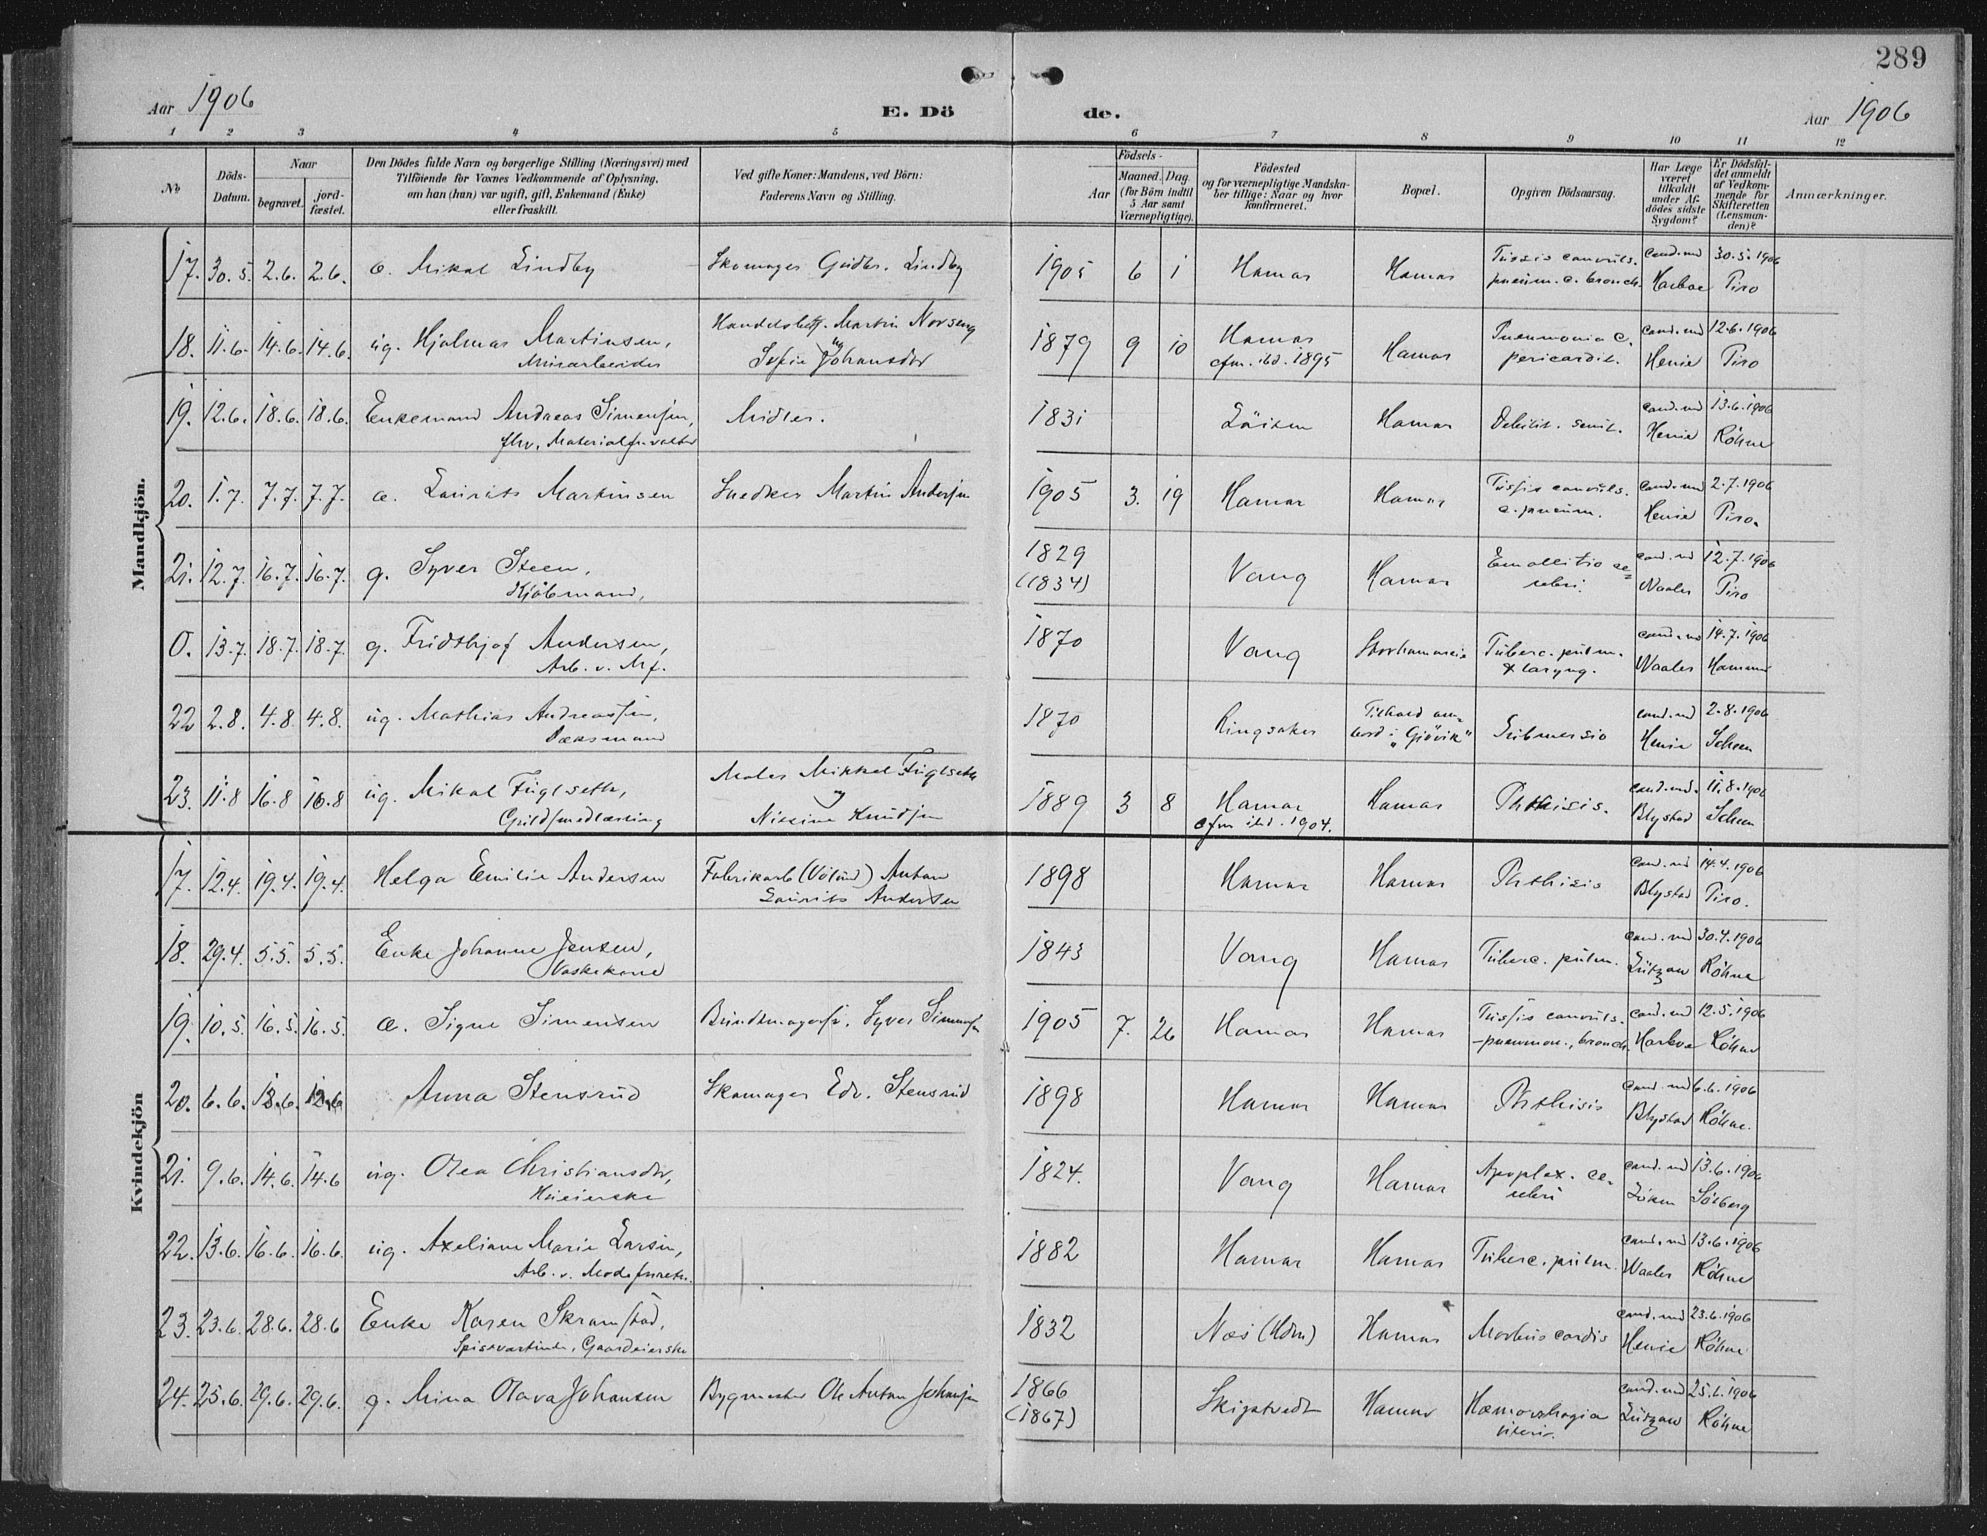 289
Aar 1906
E. Dö
de.
Aar 1906
1 2 3 4 5 6 7 8 9 10 11 12
No
Döds-
Datum.
Naar
begravet.
jord-
fæstet.
Den Dödes fulde Navn og borgerlige Stilling (Næringsvei) med
Tilföiende for Voxnes Vedkommende af Oplysning,
om han (hun) var ugift, gift, Enkemand (Enke)
eller fraskilt.
Ved gifte Koner: Mandens, ved Börn:
Faderens Navn og Stilling.
Födsels-
Aar
Maaned. Dag.
(for Börn indtil
5 Aar samt
Værnepligtige).
Födested
og for værnepligtige Mandska-
ber tillige: Naar og hvor
konfirmeret.
Bopæl.
Opgiven Dödsaarsag.
Har Læge
været
tilkaldt
under Af-
dödes sidste
Sygdom?
Er Dödsfal-
det anmeldt
af Vedkom-
mende for
Skifteretten
(Lensman-
den)?
Anmærkninger.
Mandkjön.
17. 30.5. 2.6. 2.6. Mikal Lindby Skomager Gudbr. Lindby 1905 6 1 Hamar Hamar Tussis convuls. cand. md 30.5.1906
pneum. c. bronch. Harboe Piro
18. 11.6. 14.6. 14.6. ug. Hjalmar Martinsen, Martin Norseng 1879 9 10 Hamar Hamar Pneumonia c. cand. md 12.6.1906
Murarbeider Sofie Johansdr cfm. ibd. 1895 pericardit. Henie Piro
19. 12.6. 18.6. 18.6. Enkemand Andreas Simensen, Midler. 1831 Löiten Hamar Debilit. senil. cand. md 13.6.1906
fhv. Materialforvalter Henie Röhne
20. 1.7. 7.7. 7.7. Laurits Martinsen Snedker Martin Andersen 1905 3. 19 Hamar Hamar Tussis convuls. cand. md 2.7.1906
c. pneum. Henie Piro.
21. 12.7. 16.7. 16.7. g. Syver Steen, 1829 Vang Hamar Emollitio ce= cand. md 12.7.1906
Kjöbmand, (1834) rebri. Waaler Piro
0. 13.7. 18.7. 18.7. g. Fridthjof Andersen, 1870 Vang Storhamareie Tuberc. pulm. cand. md 14.7.1906
Arb. v. & laryng. Waaler Hammer
22 2.8. 4.8 4.8. ug. Mathias Andreassen, 1870 Ringsaker Tilhold om- Submersio cand. md 2.8.1906
Dæksmand bord i "Gjövik" Henie Scheen
23. 11.8 16.8 16.8 ug. Mikal Fuglseth, Maler Mikkel Fuglseth 1889 3 8 Hamar Hamar Phthisis. cand. md. 11.8.1906
Guldsmedlærling Nissine Knudsen cfm ibd. 1904. Blystad Scheen
Kvindekjön
17. 12.4. 19.4. 19.4. Helga Emilie Andersen Fabrikarb (Völund) Anton 1898 Hamar Hamar Phthisis cand. md 14.4.1906
Laurits Andersen Blystad Piro.
18. 29.4. 5.5. 5.5. Enke Johanne Jensen, 1843 Vang Hamar Tuberc. pulm. cand. md 30.4.1906
Vaskekone Lützow Röhne
19. 10.5. 16.5. 16.5. Signe Simensen Syver Simensen 1905 7. 26 Hamar Hamar Tussis convuls. cand. md 12.5.1906
-pneumon., bronch. Harboe Röhne
20. 6.6. 12.6 Anna Stensrud Skomager Edv. Stensrud 1898 Hamar Hamar Phthisis cand. md 6.6.1906
Blystad Röhne.
21. 9.6. 14.6. 14.6 ug. Olea Christiansdr, 1824. Vang Hamar Apoplex. ce- cand. md 13.6.1906
Huseierske rebri Solberg
22. 13.6. 16.6. 16.6. ug. Axeliane Marie Larsen, 1882 Hamar Hamar Tuberc. pulm. cand. md 13.6.1906
Arb. v. Modeforretn. Waaler Röhne
23. 23.6. 28.6. 28.6 Enke Karen Skramstad, 1832 Næs (Hdm) Hamar Morbus cordis cand. md 23.6.1906
Spisevertinde, Gaardeierske Henie Röhne
24. 25.6. 29.6. 29.6. g. Mina Olava Johansen Bygmester Ole Anton Johansen 1866 Skiptvedt Hamar Hæmorrhagia cand. md 25.6.1906
(1867) uteri. Lützow Röhne